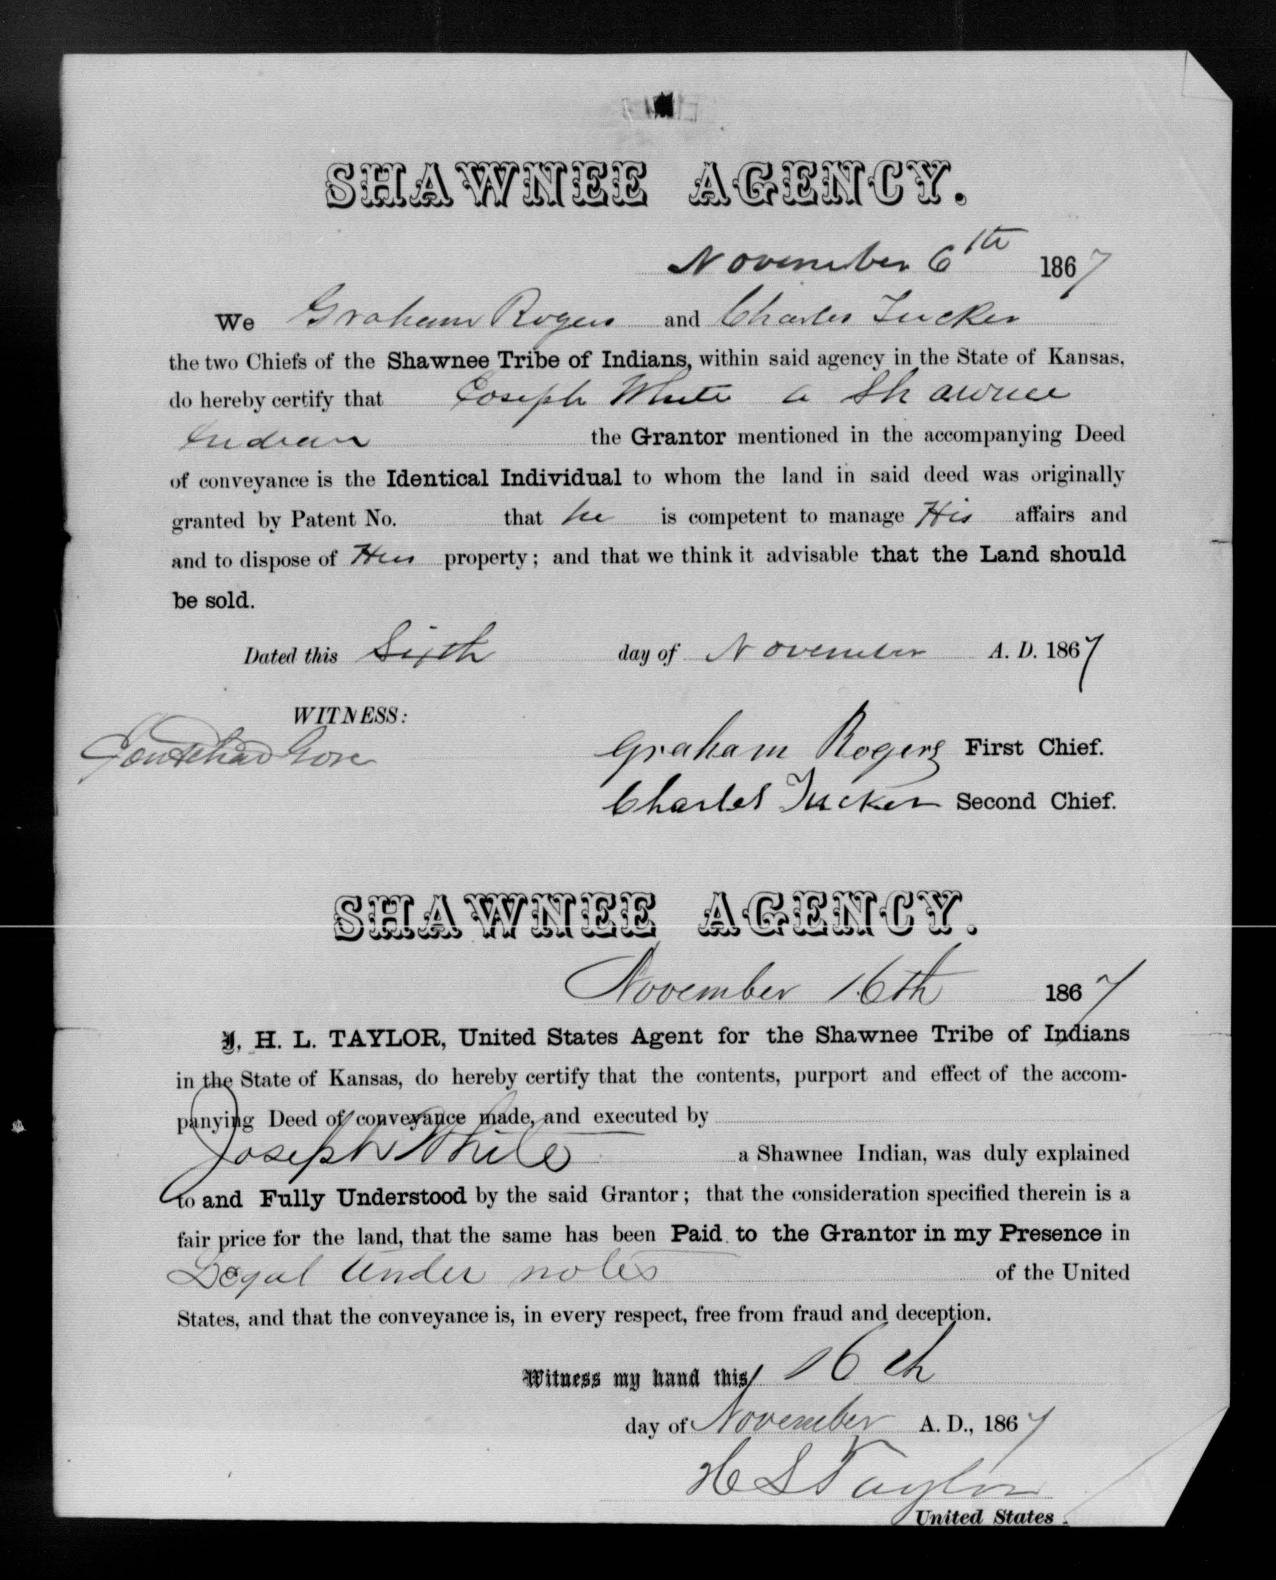 SHAWNEE AGENCY.
November 6th 1867
We Graham Rogers and Charles Tucker
the two Chiefs of the Shawnee Tribe of Indians, within said agency in the State of Kansas,
do hereby certify that Joseph White a Shawnee
Indian the Grantor mentioned in the accompanying Deed
of conveyance is the Identical Individual to whom the land in said deed was originally
granted by Patent No. that he is competent to manage His affairs and
and to dispose of His property; and that we think it advisable that the Land should
be sold.
Dated this Sixth day of November A. D. 1867
WITNESS:
Gore
Graham Rogers First Chief.
Charles Tucker Second Chief.
SHAWNEE AGENCY.
November 16th 1867
I, H. L. TAYLOR, United States Agent for the Shawnee Tribe of Indians
in the State of Kansas, do hereby certify that the contents, purport and effect of the accom-
panying Deed of conveyance made, and executed by
Joseph White a Shawnee Indian, was duly explained
to and Fully Understood by the said Grantor; that the consideration specified therein is a
fair price for the land, that the same has been Paid to the Grantor in my Presence in
Legal tender notes of the United
States, and that the conveyance is, in every respect, free from fraud and deception.
Witness my hand this 16th
day of November A. D., 1867
H L Taylor
United States